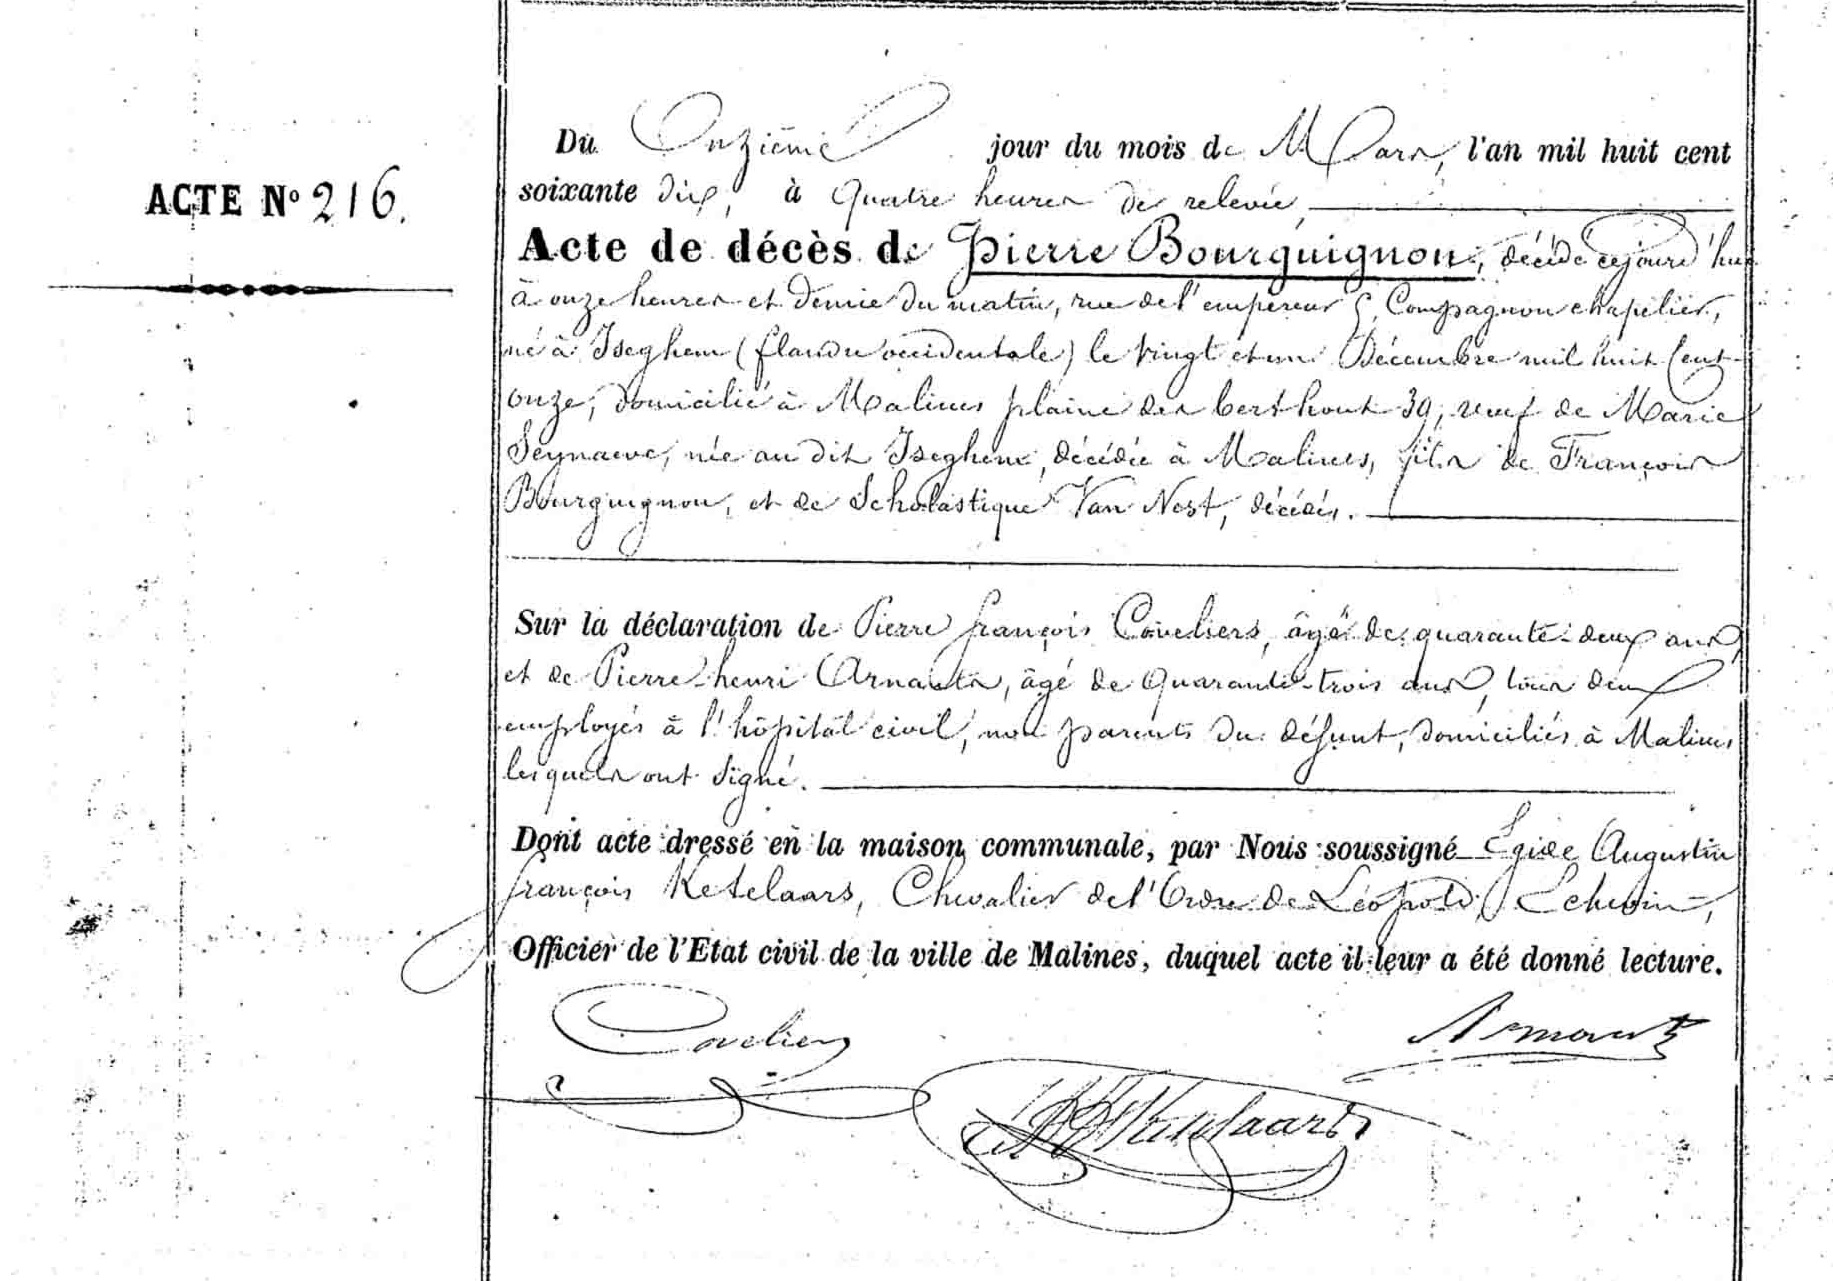 Du Onzième jour du mois de Mars, l'an mil huit cent
ACTE N° 216.
soixante dix, à quatre heures de relevée,
Acte de décès de Pierre Bourguignon, décédé cejourd'hui
à onze heures et demie du matin, rue de l'empereur 5, Compagnon chapelier,
né à Iseghem (flandre occidentale) le vingt et un Décembre mil huit Cent
onze, domicilié à Malines plaine des berthout 39, veuf de Marie
Seynaeve, née au dit Iseghem, décédée à Malines, fils de François
Bourguignon, et de Scholastique Van Nest, décédés.
Sur la déclaration de Pierre françois Coveliers, âgé de quarante-deux ans,
et de Pierre-henri Arnauts, âgé de Quarante-trois ans, tous deux
employés à l'hôpital civil, non parents du défunt, domiciliés à Malines
lesquels ont signé.
Dont acte dressé en la maison communale, par Nous soussigné Egide Augustin
françois Ketelaars, Chevalier de l'Ordre de Léopold, Echevin,
Officier de l'Etat civil de la ville de Malines, duquel acte il leur a été donné lecture.
Coveliers
Arnauts
Ketelaars